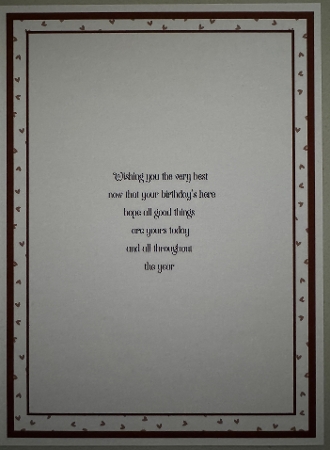 Wishing you the very best
now that your birthday's here
hope all good things
are yours today
and all throughout
the year